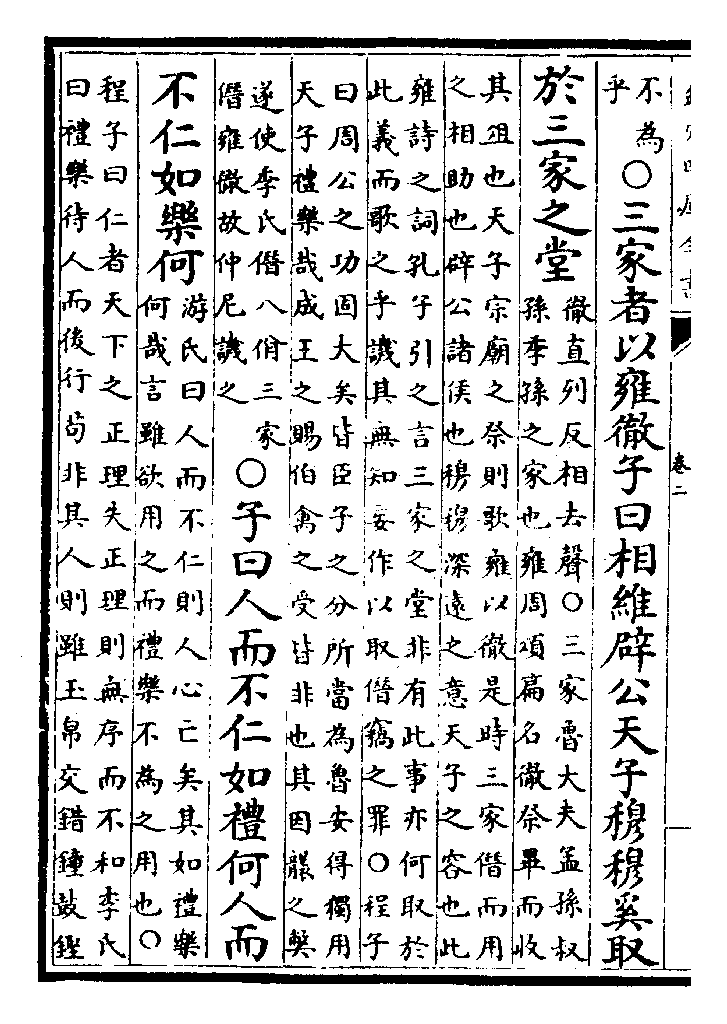 欽定四庫全書
卷二
不為
乎
○三家者以雍徹子曰相維辟公天子穆穆奚取
於三家之堂
徹直列反相去聲○三家魯大夫孟孫叔
孫季孫之家也雍周頌篇名徹祭畢而收
其俎也天子宗廟之祭則歌雍以徹是時三家僭而用
之相助也辟公諸侯也穆穆深遠之意天子之容也此
雍詩之詞孔子引之言三家之堂非有此事亦何取於
此義而歌之乎譏其無知妄作以取僭竊之罪○程子
曰周公之功固大矣皆臣子之分所當為魯安得獨用
天子禮樂哉成王之賜伯禽之受皆非也其因襲之獘
遂使季氏僭八佾三家
僭雍徹故仲尼譏之
○子曰人而不仁如禮何人而
不仁如樂何
游氏曰人而不仁則人心亡矣其如禮樂
何哉言雖欲用之而禮樂不為之用也○
程子曰仁者天下之正理失正理則無序而不和李氏
曰禮樂待人而後行苟非其人則雖玉帛交錯鐘鼓鏗